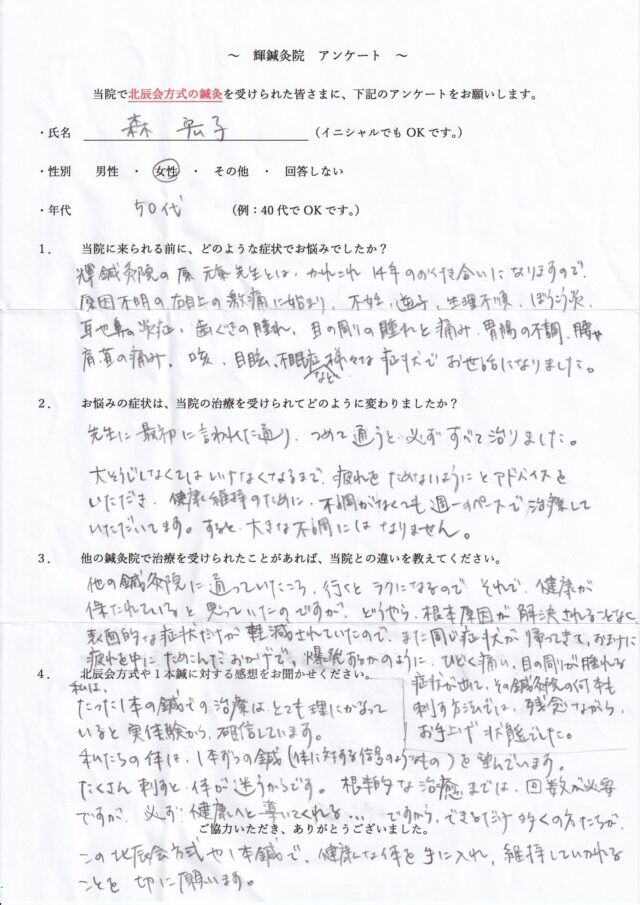 ～ 輝鍼灸院 アンケート ～
当院で北辰会方式の鍼灸を受けられた皆さまに、下記のアンケートをお願いします。
・氏名 森 宏子 （イニシャルでもOKです。）
・性別 男性 ・ 女性 ・ その他 ・ 回答しない
・年代 50代 （例：40代でOKです。）
1． 当院に来られる前に、どのような症状でお悩みでしたか？
輝鍼灸院の原 先生とは、かれこれ 14年のお付き合いになりますので、
原因不明の右目上の激痛に始まり、不妊、逆子、生理不順、ぼうこう炎、
耳や鼻の炎症、歯ぐきの腫れ、目の周りの腫れと痛み、胃腸の不調、腰や
肩首の痛み、咳、目眩、不眠症など様々な症状でお世話になりました。
2． お悩みの症状は、当院の治療を受けられてどのように変わりましたか？
先生に最初に言われた通り、つめて通うと必ずすべて治りました。
大そうじしなくてはいけなくなるまで、疲れをためないようにとアドバイスを
いただき、健康維持のために、不調がなくても週一のペースで治療して
いただいてます。すると、大きな不調にはなりません。
3． 他の鍼灸院で治療を受けられたことがあれば、当院との違いを教えてください。
他の鍼灸院に通っていたころ、行くとラクになるので、それで、健康が
保たれていると思っていたのですが、どうやら、根本原因が解決されることなく
表面的な症状だけが軽減されていたので、また同じ症状が帰ってきて、おまけに
疲れを中にためこんだおかげで、爆発するかのように、ひどく痛い、目の周りが腫れる
症状が出て、その鍼灸院の何本も
刺す方法では、残念ながら、
お手上げ状態でした。
4． 北辰会方式や1本鍼に対する感想をお聞かせください。
私は、
たった1本の鍼での治療は、とても理にかなって
いると実体験から、確信しています。
私たちの体は、1本ずつの鍼（体に対する信号のようなもの）を望んでいます。
たくさん刺すと、体が迷うからです。根本的な治癒までは、回数が必要
ですが、必ず健康へと導いてくれる… ですから、できるだけ多くの方たちが、
ご協力いただき、ありがとうございました。
この北辰会方式や1本鍼で、健康な体を手に入れ、維持していかれる
ことを切に願います。